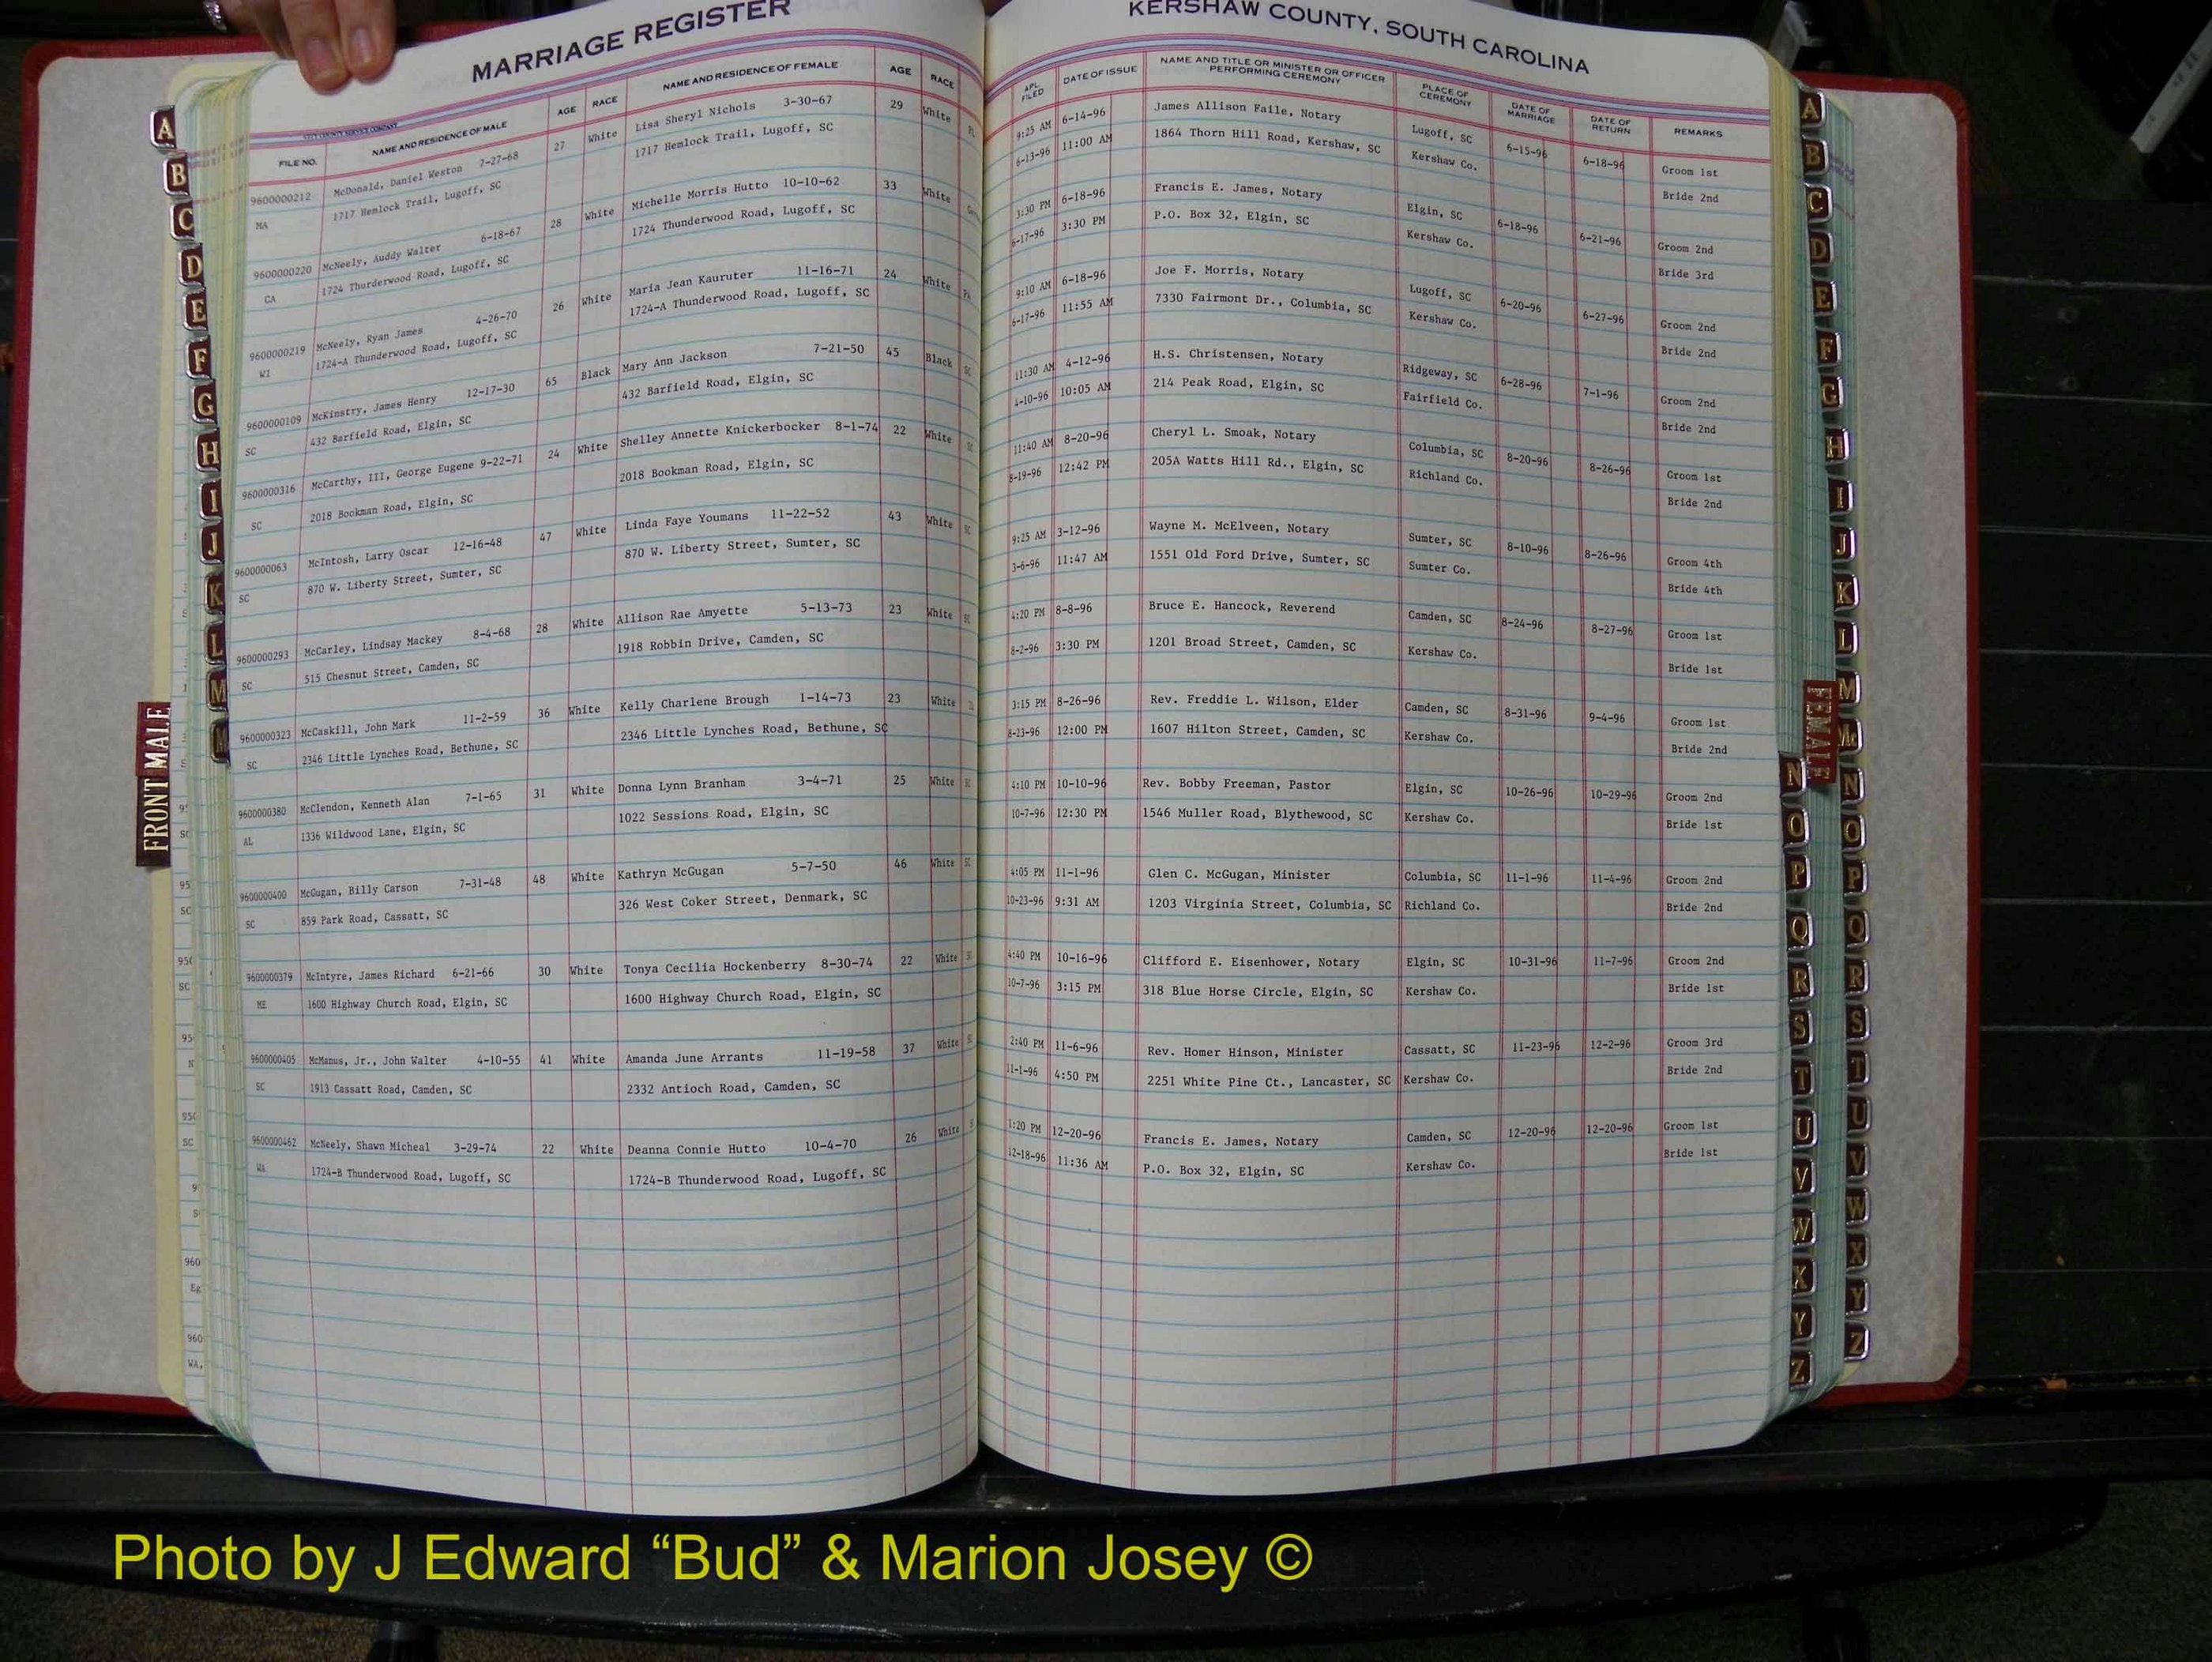 MARRIAGE REGISTER
KERSHAW COUNTY, SOUTH CAROLINA
FILE NO. NAME AND RESIDENCE OF MALE AGE RACE NAME AND RESIDENCE OF FEMALE AGE RACE
APL. FILED DATE OF ISSUE NAME AND TITLE OR MINISTER OR OFFICER PERFORMING CEREMONY PLACE OF CEREMONY DATE OF MARRIAGE DATE OF RETURN REMARKS
9600000212 McDonald, Daniel Weston 7-27-68 27 White Lisa Sheryl Nichols 3-30-67 29 White 9:25 AM 6-14-96 James Allison Faile, Notary Lugoff, SC 6-15-96 6-18-96 Groom 1st
MA 1717 Hemlock Trail, Lugoff, SC 1717 Hemlock Trail, Lugoff, SC 6-13-96 11:00 AM 1864 Thorn Hill Road, Kershaw, SC Kershaw Co. Bride 2nd
9600000220 McNeely, Auddy Walter 6-18-67 28 White Michelle Morris Hutto 10-10-62 33 White 3:30 PM 6-18-96 Francis E. James, Notary Elgin, SC 6-18-96 6-21-96 Groom 2nd
CA 1724 Thurderwood Road, Lugoff, SC 1724 Thunderwood Road, Lugoff, SC 6-17-96 3:30 PM P.O. Box 32, Elgin, SC Kershaw Co. Bride 3rd
9600000219 McNeely, Ryan James 4-26-70 26 White Maria Jean Kauruter 11-16-71 24 White 9:10 AM 6-18-96 Joe F. Morris, Notary Lugoff, SC 6-20-96 6-27-96 Groom 2nd
WI 1724-A Thunderwood Road, Lugoff, SC 1724-A Thunderwood Road, Lugoff, SC 6-17-96 11:55 AM 7330 Fairmont Dr., Columbia, SC Kershaw Co. Bride 2nd
9600000109 McKinstry, James Henry 12-17-30 65 Black Mary Ann Jackson 7-21-50 45 Black 11:30 AM 4-12-96 H.S. Christensen, Notary Ridgeway, SC 6-28-96 7-1-96 Groom 2nd
SC 432 Barfield Road, Elgin, SC 432 Barfield Road, Elgin, SC 4-10-96 10:05 AM 214 Peak Road, Elgin, SC Fairfield Co. Bride 2nd
9600000316 McCarthy, III, George Eugene 9-22-71 24 White Shelley Annette Knickerbocker 8-1-74 22 White 11:40 AM 8-20-96 Cheryl L. Smoak, Notary Columbia, SC 8-20-96 8-26-96 Groom 1st
SC 2018 Bookman Road, Elgin, SC 2018 Bookman Road, Elgin, SC 8-19-96 12:42 PM 205A Watts Hill Rd., Elgin, SC Richland Co. Bride 2nd
9600000063 McIntosh, Larry Oscar 12-16-48 47 White Linda Faye Youmans 11-22-52 43 White 9:25 AM 3-12-96 Wayne M. McElveen, Notary Sumter, SC 8-10-96 8-26-96 Groom 4th
SC 870 W. Liberty Street, Sumter, SC 870 W. Liberty Street, Sumter, SC 3-6-96 11:47 AM 1551 Old Ford Drive, Sumter, SC Sumter Co. Bride 4th
9600000293 McCarley, Lindsay Mackey 8-4-68 28 White Allison Rae Amyette 5-13-73 23 White 4:20 PM 8-8-96 Bruce E. Hancock, Reverend Camden, SC 8-24-96 8-27-96 Groom 1st
SC 515 Chesnut Street, Camden, SC 1918 Robbin Drive, Camden, SC 8-2-96 3:30 PM 1201 Broad Street, Camden, SC Kershaw Co. Bride 1st
9600000323 McCaskill, John Mark 11-2-59 36 White Kelly Charlene Brough 1-14-73 23 White 3:15 PM 8-26-96 Rev. Freddie L. Wilson, Elder Camden, SC 8-31-96 9-4-96 Groom 1st
SC 2346 Little Lynches Road, Bethune, SC 2346 Little Lynches Road, Bethune, SC 8-23-96 12:00 PM 1607 Hilton Street, Camden, SC Kershaw Co. Bride 2nd
9600000380 McClendon, Kenneth Alan 7-1-65 31 White Donna Lynn Branham 3-4-71 25 White 4:10 PM 10-10-96 Rev. Bobby Freeman, Pastor Elgin, SC 10-26-96 10-29-96 Groom 2nd
AL 1336 Wildwood Lane, Elgin, SC 1022 Sessions Road, Elgin, SC 10-7-96 12:30 PM 1546 Muller Road, Blythewood, SC Kershaw Co. Bride 1st
9600000400 McGugan, Billy Carson 7-31-48 48 White Kathryn McGugan 5-7-50 46 White 4:05 PM 11-1-96 Glen C. McGugan, Minister Columbia, SC 11-1-96 11-4-96 Groom 2nd
SC 859 Park Road, Cassatt, SC 326 West Coker Street, Denmark, SC 10-23-96 9:31 AM 1203 Virginia Street, Columbia, SC Richland Co. Bride 2nd
9600000379 McIntyre, James Richard 6-21-66 30 White Tonya Cecilia Hockenberry 8-30-74 22 White 4:40 PM 10-16-96 Clifford E. Eisenhower, Notary Elgin, SC 10-31-96 11-7-96 Groom 2nd
ME 1600 Highway Church Road, Elgin, SC 1600 Highway Church Road, Elgin, SC 10-7-96 3:15 PM 318 Blue Horse Circle, Elgin, SC Kershaw Co. Bride 1st
9600000405 McManus, Jr., John Walter 4-10-55 41 White Amanda June Arrants 11-19-58 37 White 2:40 PM 11-6-96 Rev. Homer Hinson, Minister Cassatt, SC 11-23-96 12-2-96 Groom 3rd
SC 1913 Cassatt Road, Camden, SC 2332 Antioch Road, Camden, SC 11-1-96 4:50 PM 2251 White Pine Ct., Lancaster, SC Kershaw Co. Bride 2nd
9600000462 McNeely, Shawn Micheal 3-29-74 22 White Deanna Connie Hutto 10-4-70 26 White 1:20 PM 12-20-96 Francis E. James, Notary Camden, SC 12-20-96 12-20-96 Groom 1st
WA 1724-B Thunderwood Road, Lugoff, SC 1724-B Thunderwood Road, Lugoff, SC 12-18-96 11:36 AM P.O. Box 32, Elgin, SC Kershaw Co. Bride 1st
A
B
C
D
E
F
G
H
I
J
K
L
M
FRONT MALE
A
B
C
D
E
F
G
H
I
J
K
L
M
Mc
N
O
P
Q
R
S
T
U
V
W
X
Y
Z
N
O
P
Q
R
S
T
U
V
W
X
Y
Z
Photo by J Edward “Bud” & Marion Josey ©